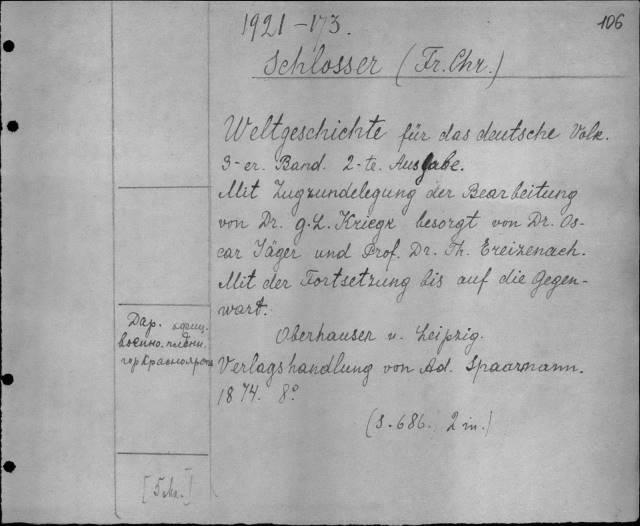 106
1921-173.
Schlosser (Fr. Chr.)
Weltgeschichte für das deutsche Volk.
3-er. Band. 2-te. Ausgabe.
Mit Zugzundelegung der Bearbeitung
von Dr. G. L. Kriegk besorgt von Dr. Os-
car Jäger und Prof. Dr. Th. Creizenach.
Mit der Fortsetzung bis auf die Gegen-
wart.
Oberhauser u. Leipzig.
Verlagshandlung von Ad. Spaarmann.
1874. 8°
(S. 686. 2 in.)
Дар. офиц.
военно.пленн.
гор Красноярска